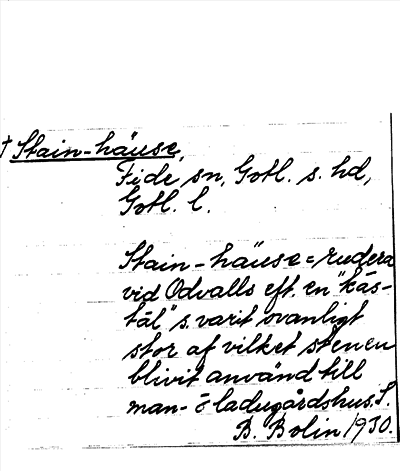 † Stain-häuse,
Fide sn, Gotl. s. hd,
Gotl. l.
Stain-häuse = rudera
vid Odvalls eft. en "käs-
täl" s. varit ovanligt
stor af vilket stenen
blivit använd till
man- o ladugårdshus. S.
B. Bolin 1930.